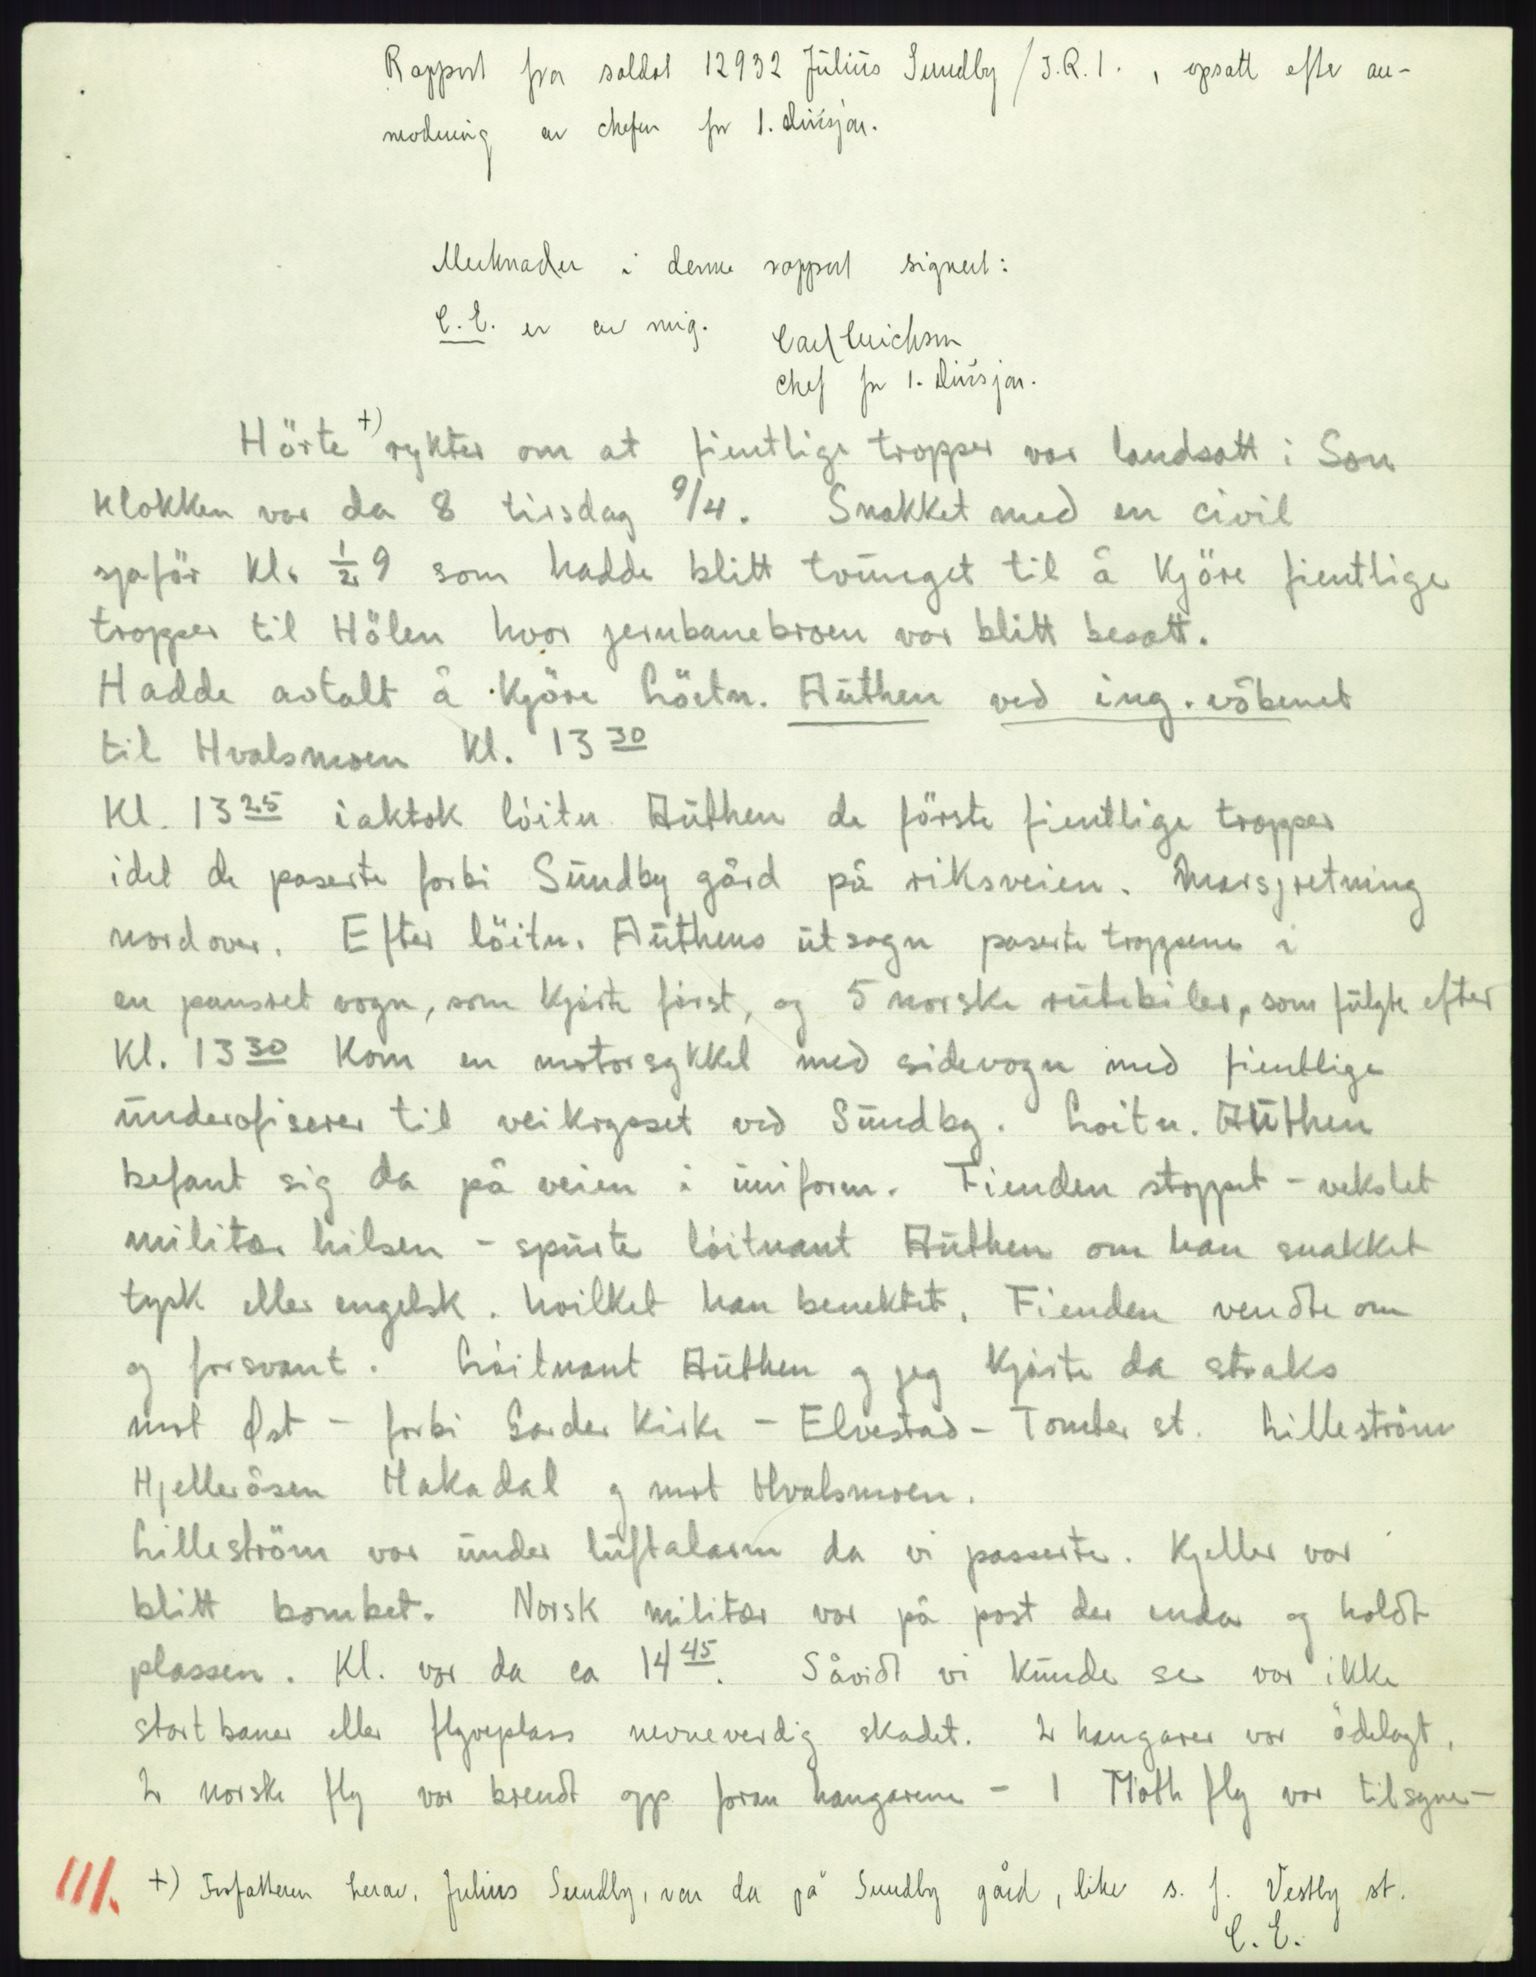 Rapport fra soldat 12932 Julius Sundby / I.R. 1. , opsatt efter an-
modning av chefen for 1. divisjon.
Merknader i denne rapport signert:
C.E. er av mig.
Carl Erichsen
Chef for 1. divisjon.
Hörte +) rykter om at fientlige tropper var landsatt i Son
klokken var da 8 tirsdag 9/4. Snakket med en civil
sjaför kl. 1/2 9 som hadde blitt tvunget til å kjöre fientlige
tropper til Hölen hvor jernbanebroen var blitt besatt.
Hadde avtalt å kjöre Löitn. Authen ved ing. våbenet
til Hvalsmoen kl. 13 30
Kl. 13 25 iaktok löitn Authen de förste fientlige tropper
idet de paserte forbi Sundby gård på riksveien. Marsjretning
nordover. Efter löitn. Authens utsagn paserte troppene i
en pansret vogn, som kjörte först, og 5 norske rutebiler, som fulgte efter
Kl. 13 30 kom en motorsykkel med sidevogn med fientlige
underofiserer til veikrysset ved Sundby. Löitn. Authen
befant sig da på veien i uniform. Fienden stoppet - vekslet
militær hilsen - spurte löitnant Authen om han snakket
tysk eller engelsk. hvilket han benektet. Fienden vendte om
og forsvant. Löitnant Authen og jeg kjörte da straks
mot Øst - forbi Garder Kirke - Elvestad - Tomter st. Lilleström
Hjelleråsen Hakadal og mot Hvalsmoen.
Lilleström var under luftalarm da vi passerte. Kjeller var
blitt bombet. Norsk militær var på post der enda og holdt
plassen. Kl. var da ca 14 45. Såvidt vi kunde se var ikke
startbaner eller flyveplass nevneverdig skadet. 2 hangarer var ödelagt,
2 norske fly var brendt opp foran hangarene - 1 Moth fly var tilsyne-
III. +) Forfatteren herav, Julius Sundby, var da på Sundby gård, like s. f. Vestby st.
C. E.